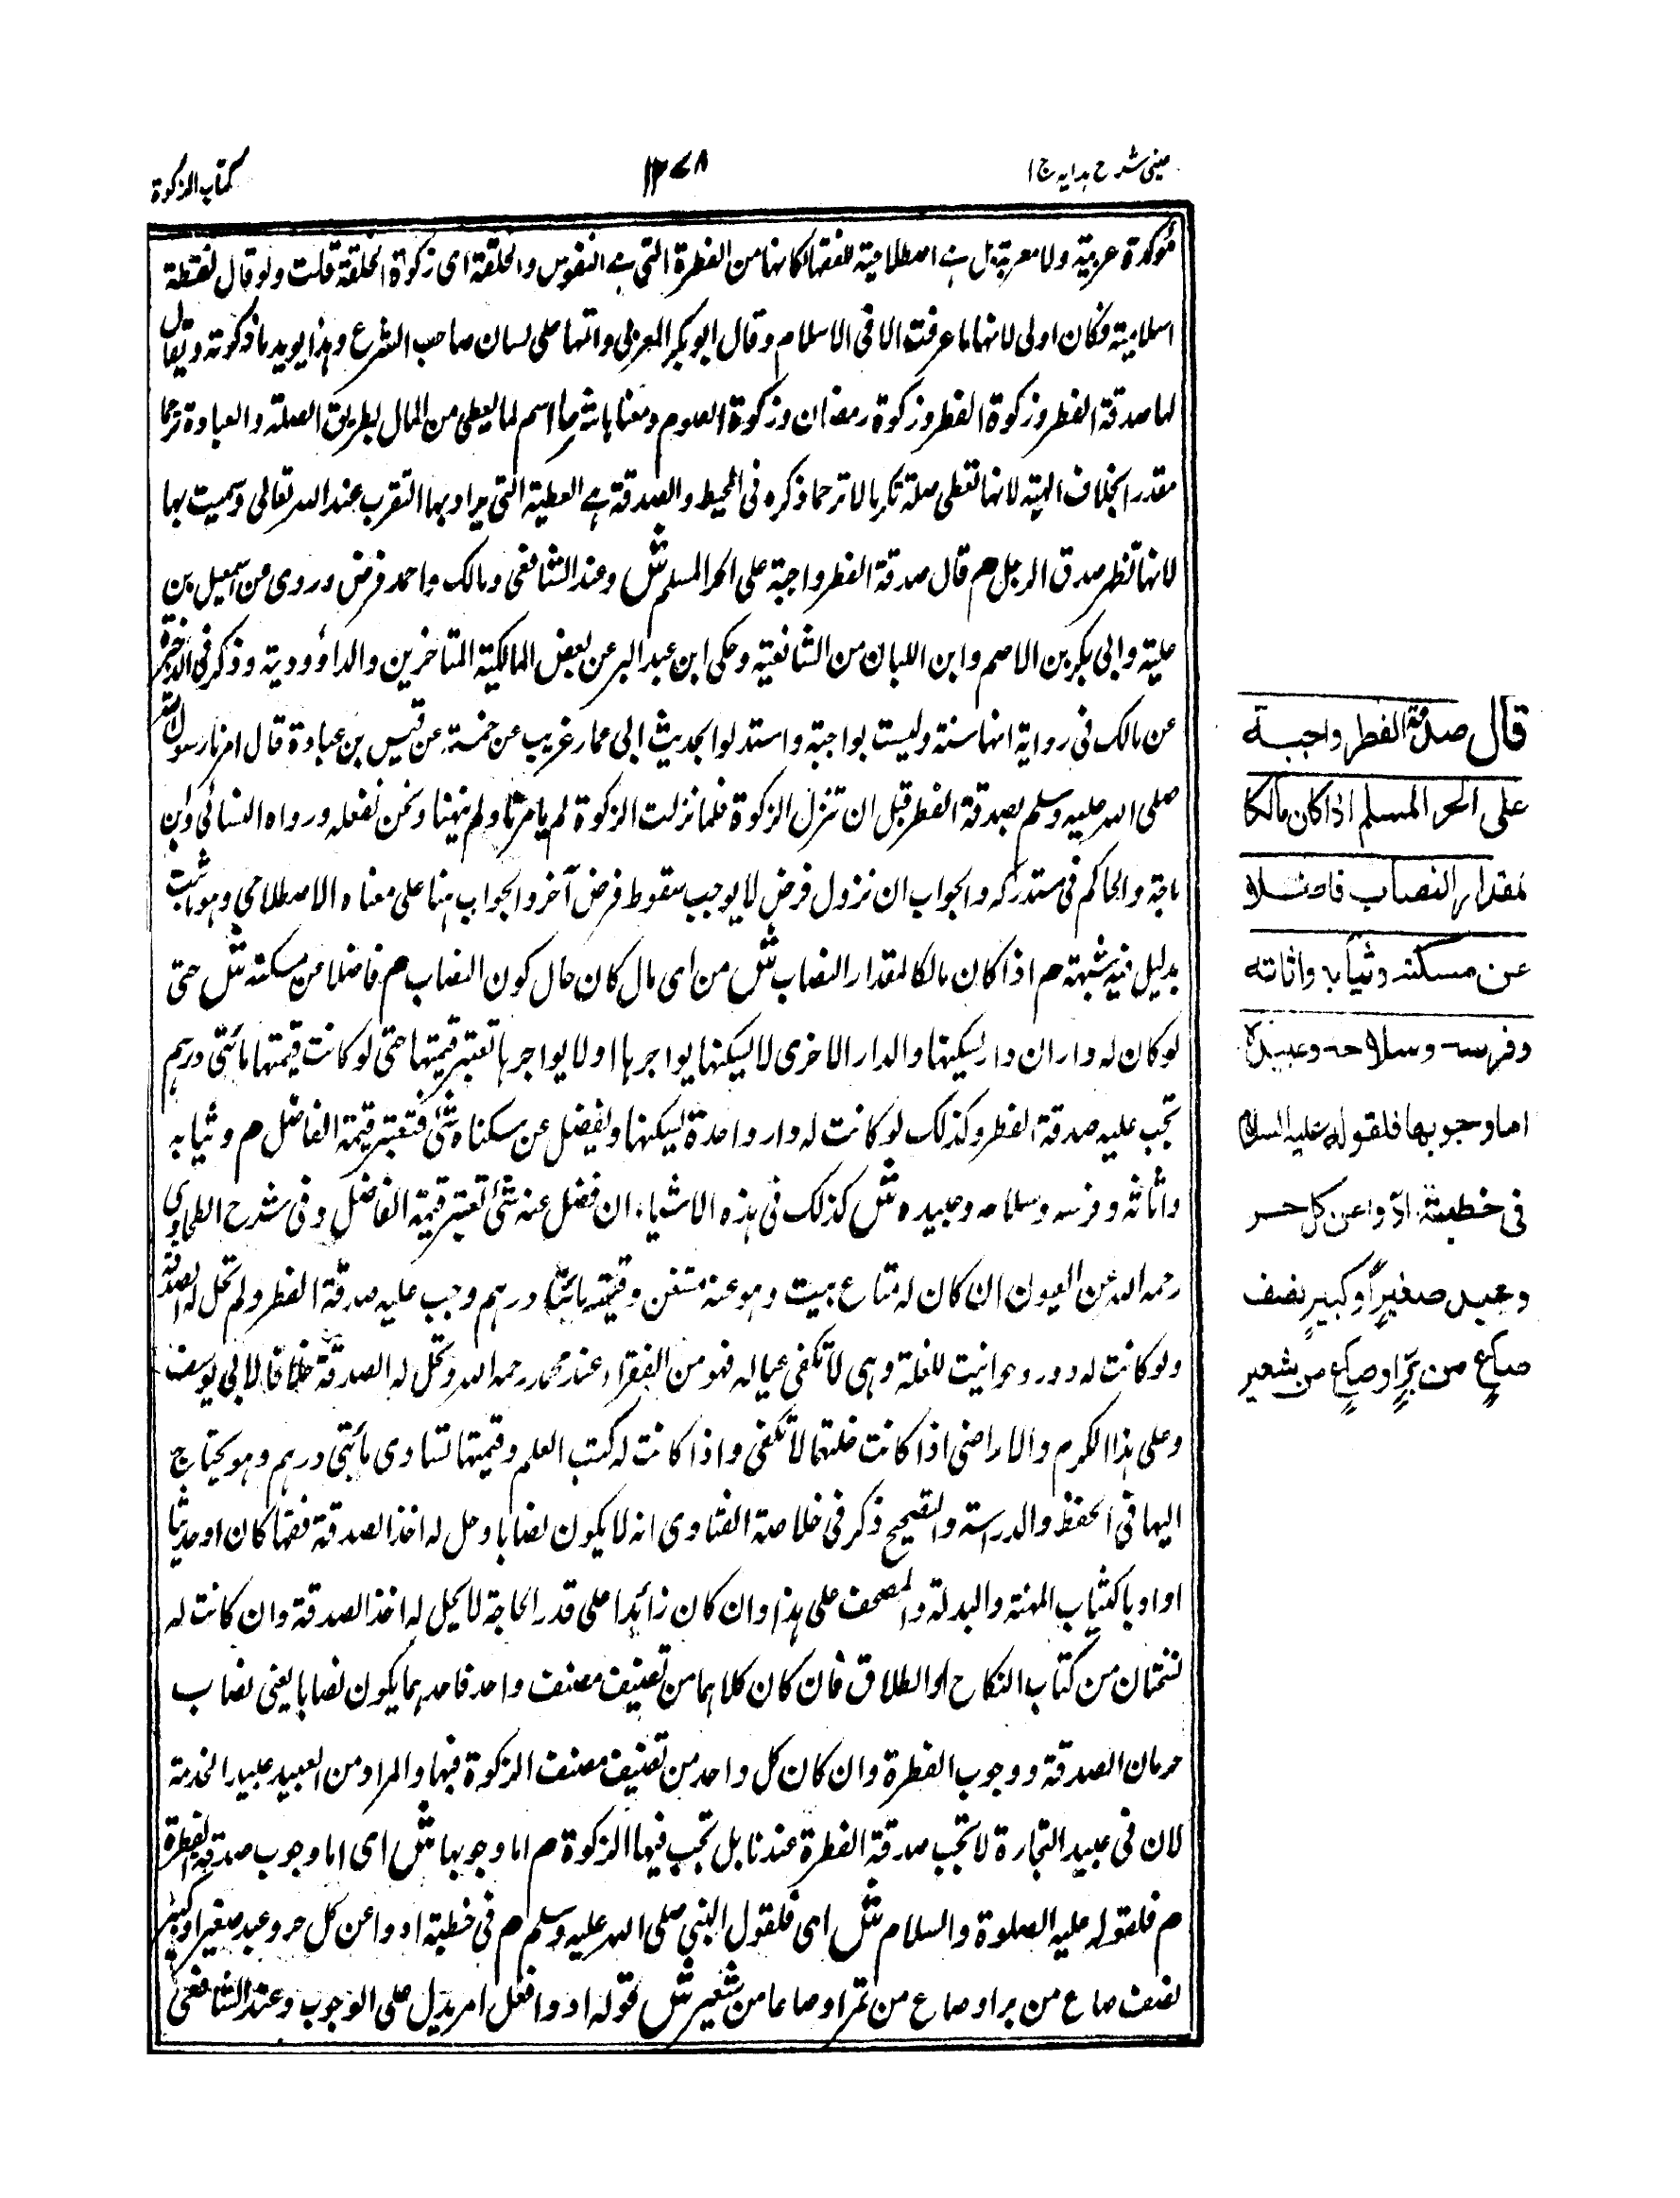 عینی شرح ہدایہ ج ۱
۱۲۷۸
کتاب الزکوة
مولدة عربیة ولا معربة بل ہے اصطلاحیة للفقہا کانہا من الفطرة التی ہے النفوس والخلقة ای زکوة الخلقة قلت ولو قال لفظة
اسلامیة فکان اولی لانہا ما عرفت الا فی الاسلام وقال ابو بکر العربی وانہا علی لسان صاحب الشرع وہذا یوید ما ذکرته ویقال
لہا صدقة الفطر وزکوة الفطر وزکوة رمضان وزکوة الصوم ومعناہا شرعا اسم لما یعطی من المال بطریق الصلة والعبادة ترحما
مقدرا بخلاف الہبة لانہا تعطی صلة تکرما لا ترحما ذکره فی المحیط والصدقة ہے العطیة التی یراد بہا التقرب عند الله تعالی وسمیت بہا
لانہا تظہر صدق الرجل م قال صدقة الفطر واجبة علی الحر المسلم ش وعند الشافعی ومالک واحمد فرض وروی عن اسمعیل بن
علیة وابی بکر بن الاصم وابن اللبان من الشافعیة وحکی ابن عبد البر عن بعض المالکیة المتاخرین والداؤودیة وذکر فی الذخیرة
عن مالک فی روایة انہا سنة ولیست بواجبة واستدلوا بحدیث ابی عمار غریب عن خمسة عن قیس بن عبادة قال امرنا رسول الله
صلی الله علیه وسلم بصدقة الفطر قبل ان تنزل الزکوة فلما نزلت الزکوة لم یامرنا ولم ینہنا ونحن نفعله ورواه النسائی وابن
ماجة والحاکم فی مستدرکه والجواب ان نزول فرض لا یوجب سقوط فرض آخر والجواب ہنا علی معناه الاصطلاحی وہو ما ثبت
بدلیل فیه شبہة م اذا کان مالکا لمقدار النصاب ش من ای مال کان حال کون النصاب م فاضلا من مسکنه ش حتی
لو کان له داران دار یسکنہا والدار الاخری لا یسکنہا یواجرہا او لا یواجرہا تعتبر قیمتہا حتی لو کانت قیمتہا مائتی درہم
تجب علیه صدقة الفطر وکذلک لو کانت له دار واحدة یسکنہا ویفضل عن سکناه شئ فتعتبر قیمة الفاضل م وثیابه
واثاثه وفرسه وسلاحه وعبیده ش کذلک فی ہذه الاشیاء ان فضل عنه شئ تعتبر قیمة الفاضل وفی شرح الطحاوی
رحمه الله عن العیون ان کان له متاع بیت وہو عنه مستغن وقیمته مائتا درہم وجب علیه صدقة الفطر ولم تحل له الصدقة
ولو کانت له دور وحوانیت للغلة وہی لا تکفی عیاله فہو من الفقراء عند محمد رحمه الله وتحل له الصدقة خلافا لابی یوسف
وعلی ہذا الکرم والاراضی اذا کانت غلتہا لا تکفی واذا کانت له کتب العلم وقیمتہا تساوی مائتی درہم وہو یحتاج
الیہا فی الحفظ والدراسة والتصحیح ذکر فی خلاصة الفتاوی انه لا یکون نصابا وحل له اخذ الصدقة فقہا کان او حدیثا
او ادبا کثیاب المہنة والبدلة والمصحف علی ہذا وان کان زائدا علی قدر الحاجة لا یحل له اخذ الصدقة وان کانت له
نسختان من کتاب النکاح او الطلاق فان کان کلاہما من تصنیف مصنف واحد فاحدہما یکون نصابا یعنی نصاب
حرمان الصدقة ووجوب الفطرة وان کان کل واحد من تصنیف مصنف الزکوة فیہا والمراد من العبید عبید الخدمة
لان فی عبید التجارة لا تجب صدقة الفطرة عندنا بل تجب فیہا الزکوة م اما وجوبہا ش ای اما وجوب صدقة الفطرة
م فلقوله علیه الصلوة والسلام ش ای فلقول النبی صلی الله علیه وسلم م فی خطبة ادوا عن کل حر وعبد صغیر او کبیر
نصف صاع من بر او صاع من تمر او صاعا من شعیر ش قوله ادوا فعل امر یدل علی الوجوب وعند الشافعی
قال صدقة الفطر واجبة
علی الحر المسلم اذا کان مالکا
لمقدار النصاب فاضلا
عن مسکنه وثیابه واثاثه
وفرسه وسلاحه وعبیده
اما وجوبها فلقوله علیه السلام
فی خطبته ادّوا عن کل حر
وعبد صغیرٍ او کبیرٍ نصف
صاعٍ من برٍّ او صاعٍ من شعیر